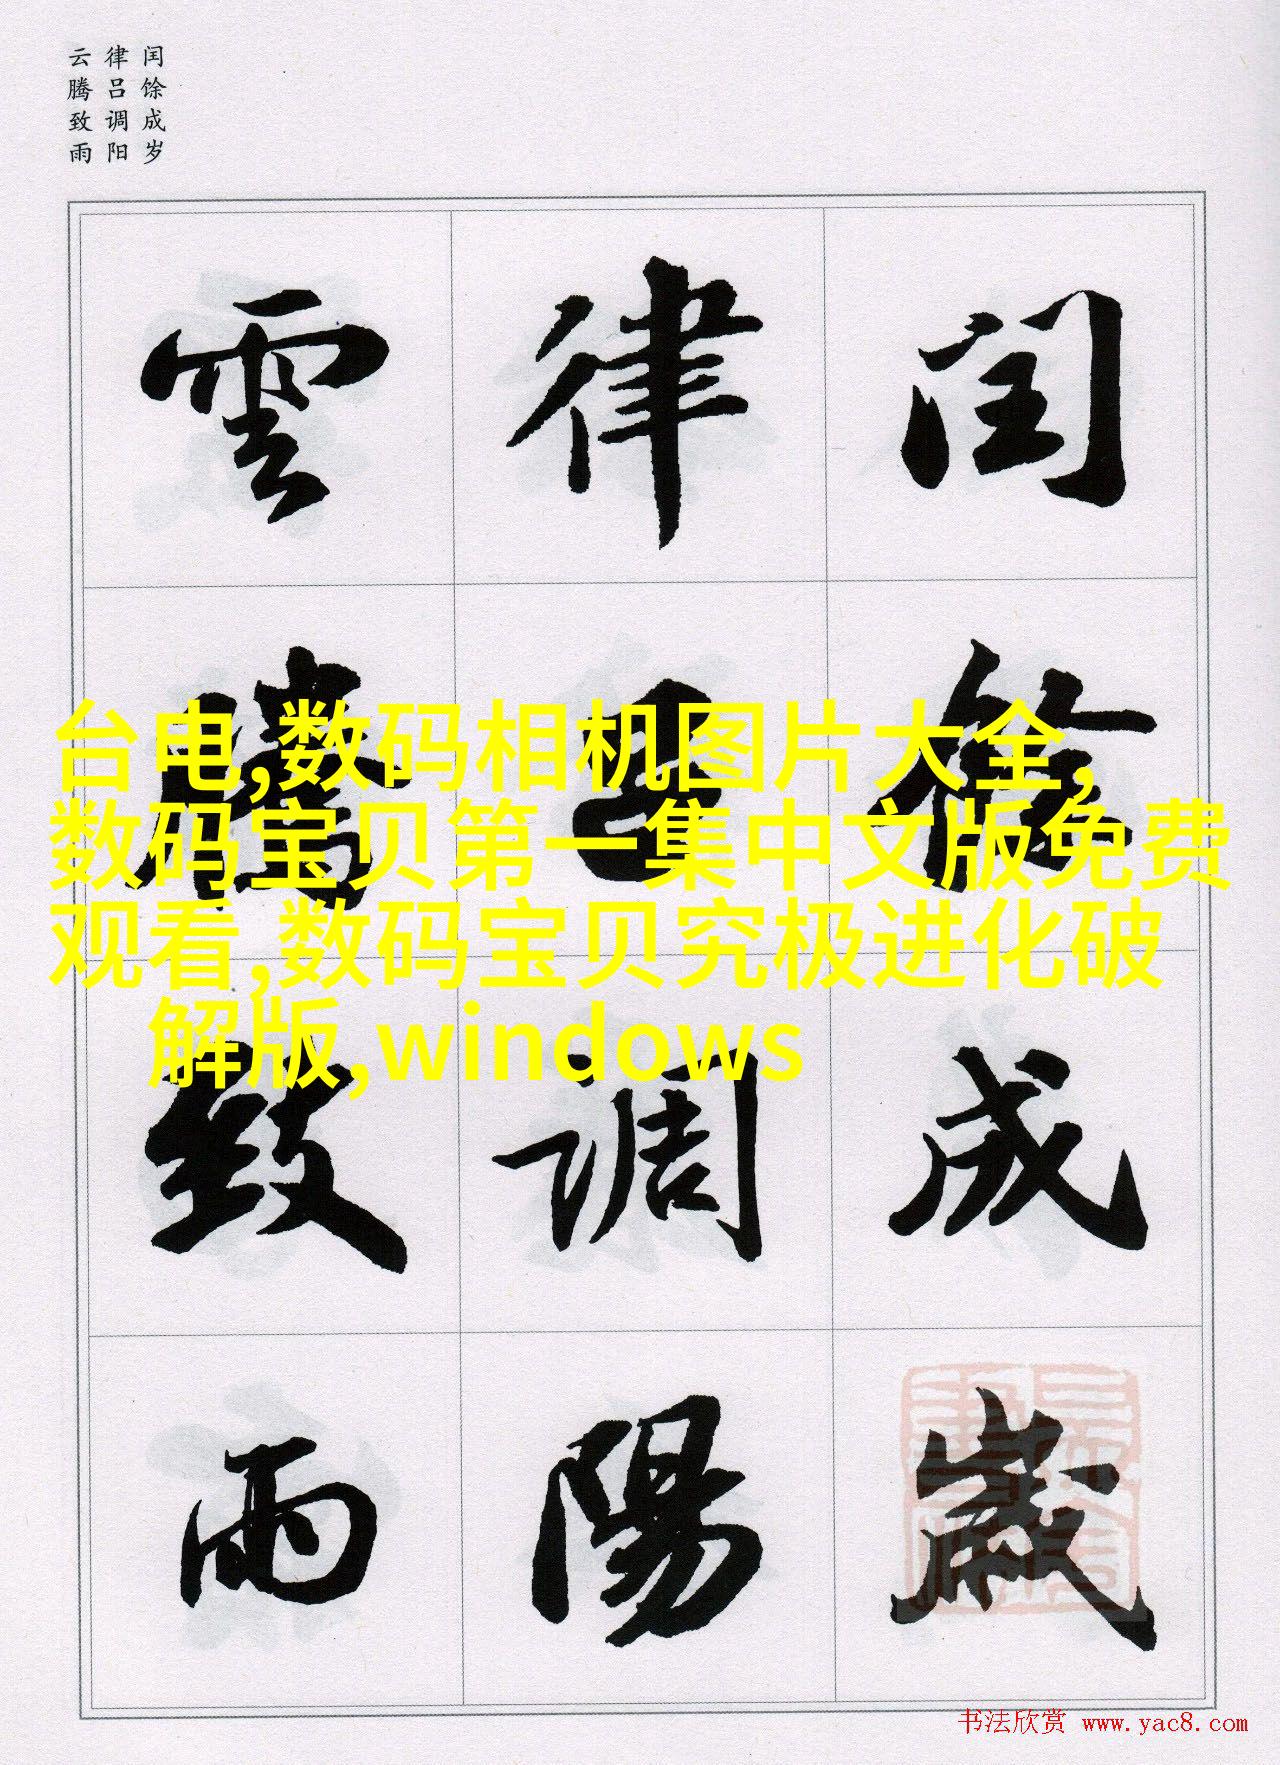 闰馀成岁
律吕调阳
云腾致雨
閏餘成歲
律呂調陽
雲騰致雨
台电,数码相机图片大全,
数码宝贝第一集中文版免费
观看,数码宝贝究极进化破
解版,windows
书法欣赏 www.yac8.com